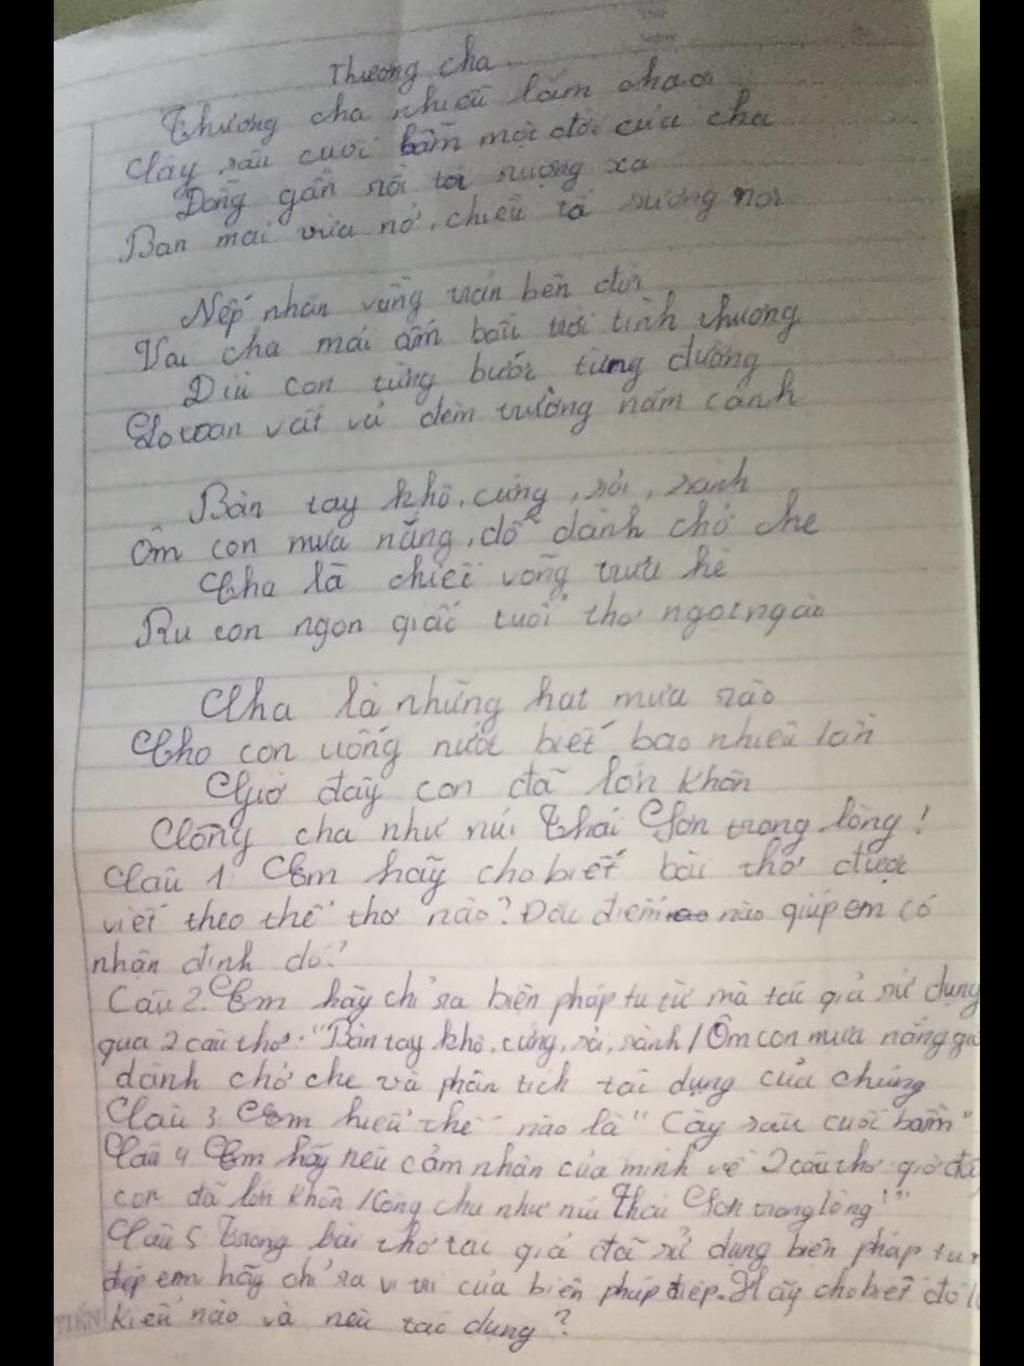 Thương cha
Thương cha nhiều lắm cha ơi
Cày sâu cuối bẫm một đời của cha
Đồng gần rồi tới ruộng xa
Ban mai vừa nở, chiều tà sương rơi
Nếp nhăn vầng trán bên đời
Vai cha mái ấm bầu trời tình thương
Dìu con từng bước từng đường
Lo toan vất vả đêm trường năm canh
Bàn tay khô, cứng, sỏi, sành
Ôm con mưa nắng, dỗ dành chở che
Cha là chiếc võng trưa hè
Ru con ngon giấc tuổi thơ ngọt ngào
Cha là những hạt mưa rào
Cho con uống nước biết bao nhiêu lần
Giờ đây con đã lớn khôn
Công cha như núi Thái Sơn trong lòng!
Câu 1. Em hãy cho biết bài thơ được
viết theo thể thơ nào? Đặc điểm nào giúp em có
nhận định đó?
Câu 2. Em hãy chỉ ra biện pháp tu từ mà tác giả sử dụng
qua 2 câu thơ: "Bàn tay khô, cứng, sỏi, sành / Ôm con mưa nắng
dành chở che và phân tích tác dụng của chúng
Câu 3. Em hiểu thế nào là "Cày sâu cuối bẫm"
Câu 4. Em hãy nêu cảm nhận của mình về 2 câu thơ giờ đâ
con đã lớn khôn / Công cha như núi Thái Sơn trong lòng!"
Câu 5. Trong bài thơ tác giả đã sử dụng biện pháp tu
điệp em hãy chỉ ra vị trí của biện pháp điệp. Hãy cho biết đó l
kiểu nào và nêu tác dụng?